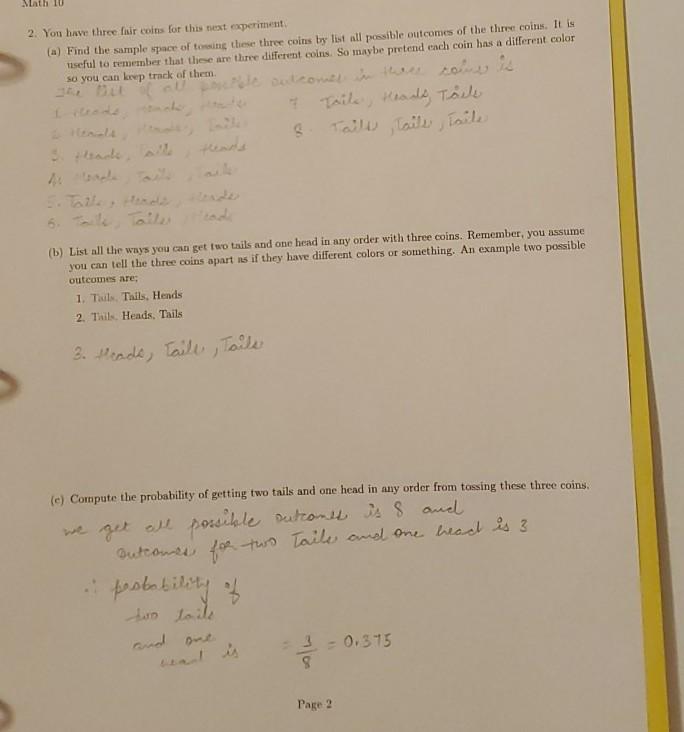 Math 10
2. You have three fair coins for this next experiment.
(a) Find the sample space of tossing these three coins by list all possible outcomes of the three coins. It is
useful to remember that these are three different coins. So maybe pretend each coin has a different color
so you can keep track of them.
The list of all possible outcomes in three coins is
1. Heads, Heads, Heads
2. Heads, Heads, Tails
3. Heads, Tails, Heads
4. Heads, Tails, Tails
5. Tails, Heads, Heads
6. Tails, Tails, Heads
7 Tails, Heads, Tails
8. Tails, Tails, Tails
(b) List all the ways you can get two tails and one head in any order with three coins. Remember, you assume
you can tell the three coins apart as if they have different colors or something. An example two possible
outcomes are;
1. Tails, Tails, Heads
2. Tails, Heads, Tails
3. Heads, Tails, Tails
(c) Compute the probability of getting two tails and one head in any order from tossing these three coins.
we get all possible outcomes is 8 and
outcomes for two Tails and one head is 3
∴ probability of
two tails
and one
head is = 3/8 = 0.375
Page 2